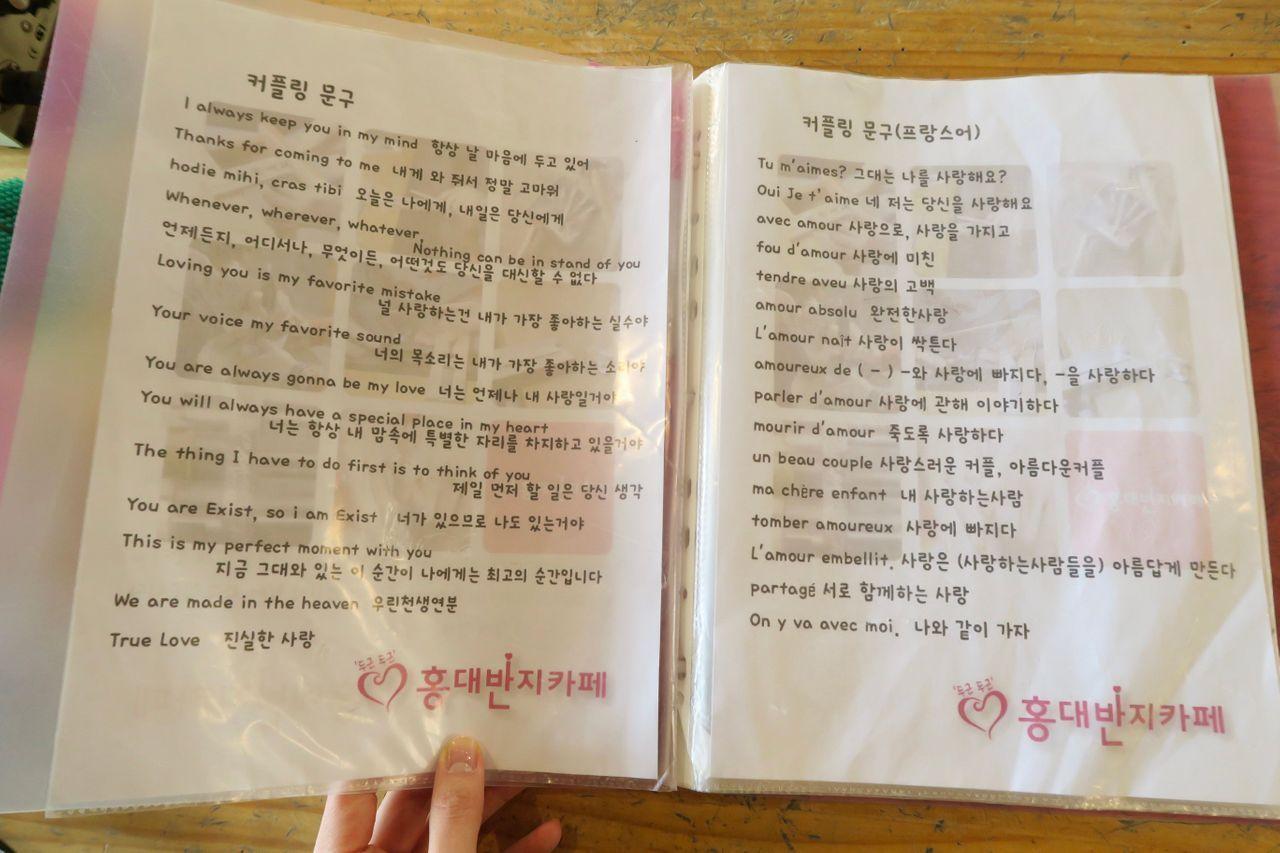 커플링 문구
I always keep you in my mind 항상 날 마음에 두고 있어
Thanks for coming to me 내게 와 줘서 정말 고마워
hodie mihi, cras tibi 오늘은 나에게, 내일은 당신에게
Whenever, wherever, whatever,
Nothing can be in stand of you
언제든지, 어디서나, 무엇이든, 어떤것도 당신을 대신할 수 없다
Loving you is my favorite mistake
널 사랑하는건 내가 가장 좋아하는 실수야
Your voice my favorite sound
너의 목소리는 내가 가장 좋아하는 소리야
You are always gonna be my love 너는 언제나 내 사랑일거야
You will always have a special place in my heart
너는 항상 내 맘속에 특별한 자리를 차지하고 있을거야
The thing I have to do first is to think of you
제일 먼저 할 일은 당신 생각
You are Exist, so i am Exist 너가 있으므로 나도 있는거야
This is my perfect moment with you
지금 그대와 있는 이 순간이 나에게는 최고의 순간입니다
We are made in the heaven 우린천생연분
True Love 진실한 사랑
'두근 두근'
홍대반지카페
커플링 문구(프랑스어)
Tu m'aimes? 그대는 나를 사랑해요?
Oui Je t'aime 네 저는 당신을 사랑해요
avec amour 사랑으로, 사랑을 가지고
fou d'amour 사랑에 미친
tendre aveu 사랑의 고백
amour absolu 완전한사랑
L'amour naît 사랑이 싹튼다
amoureux de ( - ) -와 사랑에 빠지다, -을 사랑하다
parler d'amour 사랑에 관해 이야기하다
mourir d'amour 죽도록 사랑하다
un beau couple 사랑스러운 커플, 아름다운커플
ma chère enfant 내 사랑하는사람
tomber amoureux 사랑에 빠지다
L'amour embellit. 사랑은 (사랑하는사람들을) 아름답게 만든다
partagé 서로 함께하는 사랑
On y va avec moi. 나와 같이 가자
'두근 두근'
홍대반지카페